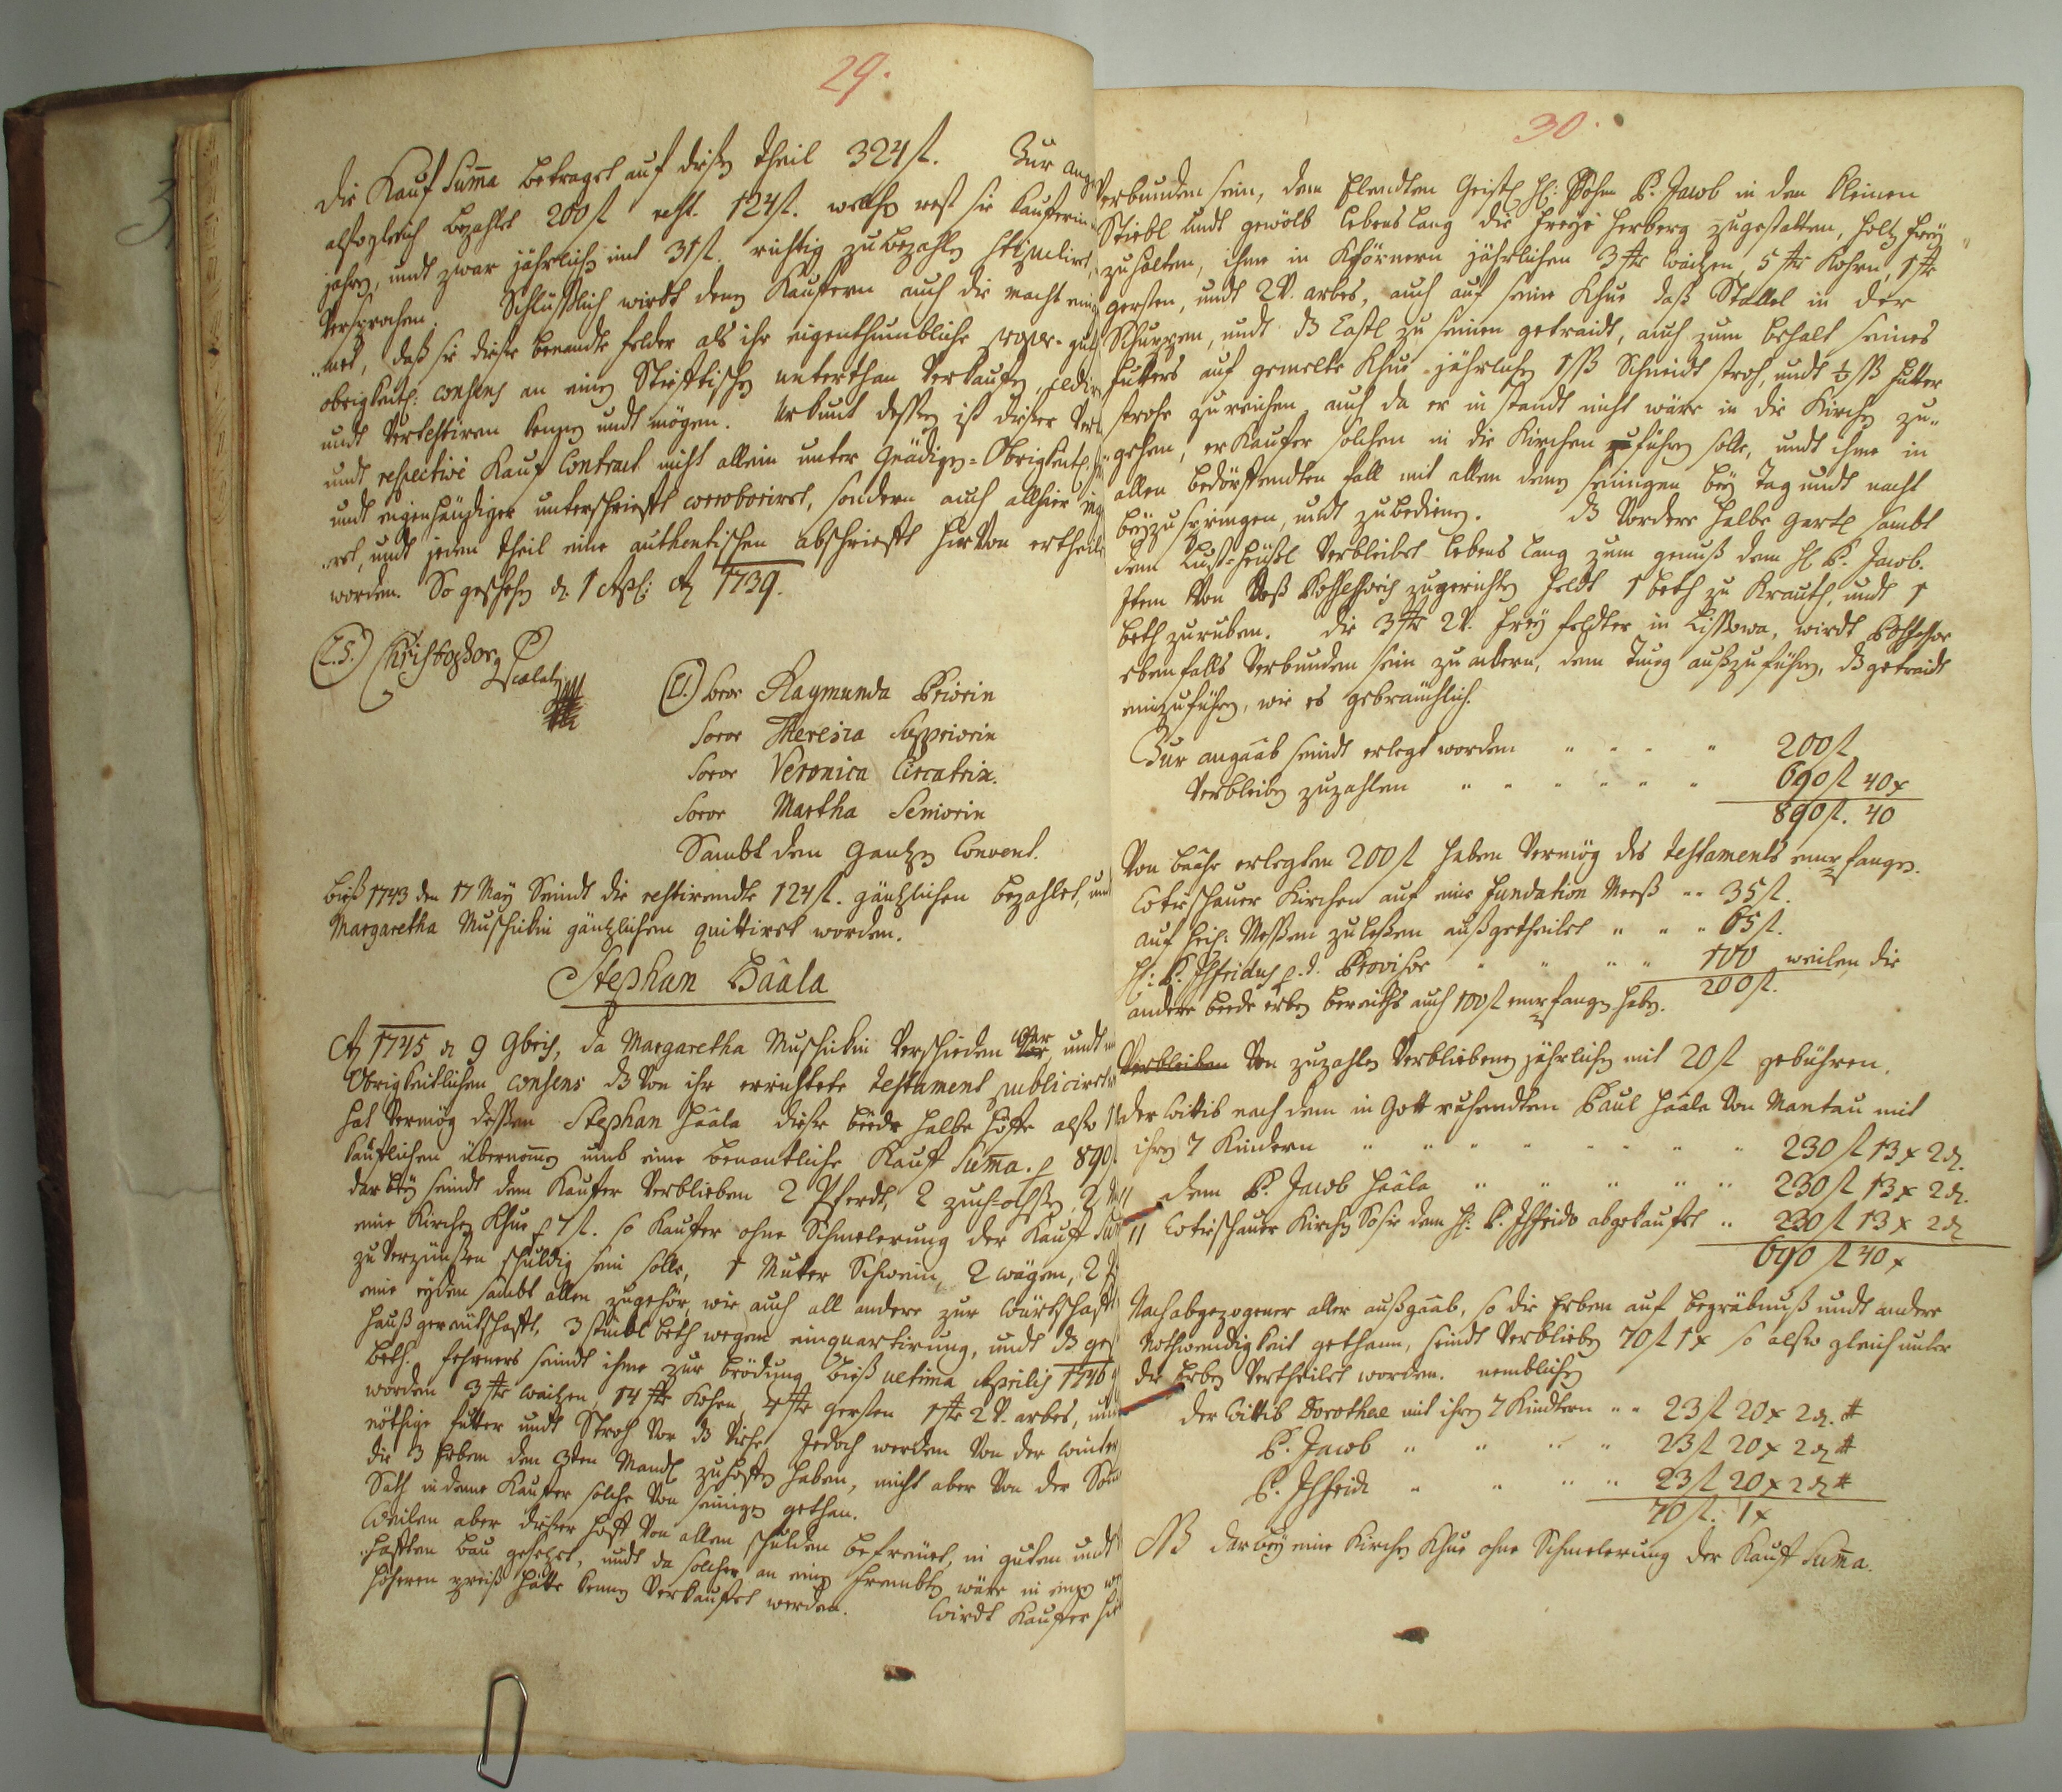 29.
Die Kauf Suma betraget auf dießen theil 324 fl. Zur ang
alsogleich bezahlet 200 fl rest. 124 fl. welchen rest sie Kauferin
jahren, undt zwar jährlichen mit 31 fl. richtig zu bezahlen stipulirt,
Versprochen. Schlüßlich wirdt denen Kaufern auch die macht ein
met, daß sie dieße benandte felder als ihr eigenthumbliche
obrigkeitl: consens an einen Stifftischen unterthan Verkaufen,
undt Vertestiren kenen undt mögen. Urkunt dessen ist dießer
undt respective Kauf Contract nicht allein unter Gnädigen-Obrigkeitl
undt eigenhändiger unterschriefft corroboriret, sondern auch allhier
ret, undt jeden theil eine authentischen abschriefft hirvon ertheilt
worden. So geschehen d. 1 Apl: Ao 1739.
(L.S.) Christophorg
Prælat
(L.) Soror Raymunda Priorin
Soror Theresia Suppriorin
Soror Veronica Circatrix.
Soror Martha Seniorin
Sambt dem Gantzen Convent.
bieß 1743 den 17 May Seindt die restirendte 124 fl. gäntzlichen bezahlet, und
Margaretha Muschikin gäntzlichem quittiret worden.
Stephan Hââla
Ao 1745 d 9 9bris, da Margaretha Muschikin Verschieden war, undt
Obrigkeitlichen consens dß Von ihr errichtete testament publiciret
hat Vermög deßen Stephan Hââla dieße beede halbe höffe also
Käuflichen übernomen umb eine benantliche Kauff Suma. p 890
darbey seindt dem Kaufer Verblieben 2 Pferdt, 2 zuch-ochßen, 2
eine Kirchen Khue p 7 fl. so Kaufer ohne Schmelerung der Kauff
zu Verzünßen schuldig sein solle, 1 Muter Schwein, 2 wägen, 2
eine eyden sambt allen zugehör, wie auch all andere zur würtschafft
hauß gereitschafft, 3 stükl beth wegen einquartirung, undt dß
beth. fehrners seindt ihme zur brödung bieß ultima Aprilis 1746
worden 3 str waitzen, 14 str Kohrn, 4 str gersten 1 str 2 V. arbes, und
nöthige futter undt Stroh Vor dß Viehe. Jedoch werden Von der winter
die 3 Erben den 3ten Mandl zu hoffen haben, nicht aber Von der
Sath indeme Kaufer solche Von seinigen gethan.
Weilen aber dießer hoff Von allen schulden befreyet, in guten undt
hafften bau gesetzet, undt da solcher an einen frembten wäre in einen
höheren preiß hätte kennen Verkauffet werden. Wirdt Kaufer
30.
Verbunden sein, dem Elendten Geistl H: Sohn P. Jacob in dem Kleinen
Stiebl undt gewölb lebens lang die freye herberg zugestatten, holtz frey
zuhalten, ihme in Khörnern jährlichen 3 str waitzen, 5 str Kohrn, 1 str
gersten, undt 2 V. arbes, auch auf seine Khue daß Stallel in der
Schuppen, undt dß Castl zu seinen getraidt, auch zum behalt seines
Futters auf gemelte Khue jährlichen 1 ßß Schneidt stroh, undt ½ ßß futter
strohe zureichen, auch da er in standt nicht wäre in die Kirchen zu-
gehen, er Kaufer solchen in die Kirchen zuführen solle, undt ihme in
allen bedörffendten fall mit allen denen seinigen bey Tag undt nacht
beyzuspringen, undt zubedienen. dß Vordere halbe gartl sambt
dem Lust-heüßl Verbleibet lebens lang zum genuß dem H P. Jacob.
Item Von zugerichten feldt 1 beth zu Krauth, undt 1
beth zu ruben. die 3 str 2 V. frey feldter in Lissowa, wirdt Possessor
ebenfalls Verbunden sein zu akern, dem Tung außzuführen, dß getraidt
einzuführen, wie es gebräuchlich.
Zur angaab seindt erlegt worden " " " " 200 fl
Verbleiben zuzahlen " " " " " " 690 fl 40 x
890 fl. 40
Von baahr erlegten 200 fl haben Vermög des testaments empfangen.
Cotieschauer Kirchen auf eine fundation Meeß " " 35 fl.
auf heil: Meßen zu leßen außgetheilet " " " 65 fl.
H: P. Ißfridus p.t. Provisor " " " " 100 weilen die
andere beede erben bereiths auch 100 fl empfangen haben. 200 fl.
Verbleiben Von zuzahlen Verbliebenen jährlichen mit 20 fl gebühren.
der Wittib nach dem in Gott ruhendten Paul Hââla Von Mantau mit
ihren 7 Kindern " " " " " " " " 230 fl 13 x 2 d.
dem P. Jacob Hââla " " " " " 230 fl 13 x 2 d.
Cotieschauer Kirchen so sie dem H: P. Ißfrido abgekauffet " 230 fl 13 x 2 d
690 fl 40 x
Nach abgezogener aller außgaab, so die Erben auf begräbnuß undt andere
Nothwendigkeit gethann, seindt Verblieben 70 fl 1 x so also gleich unter
die Erben Vertheilet worden. nemblichen
der Wittib Dorotheæ mit ihren 7 Kindtern " " 23 fl 20 x 2 d. #
P. Jacob " " " " 23 fl 20 x 2 d #
P. Ißfridi " " " " 23 fl 20 x 2 d #
70 fl. 1 x
NB darbey eine Kirchen Khue ohne Schmelerung der Kauff Suma.